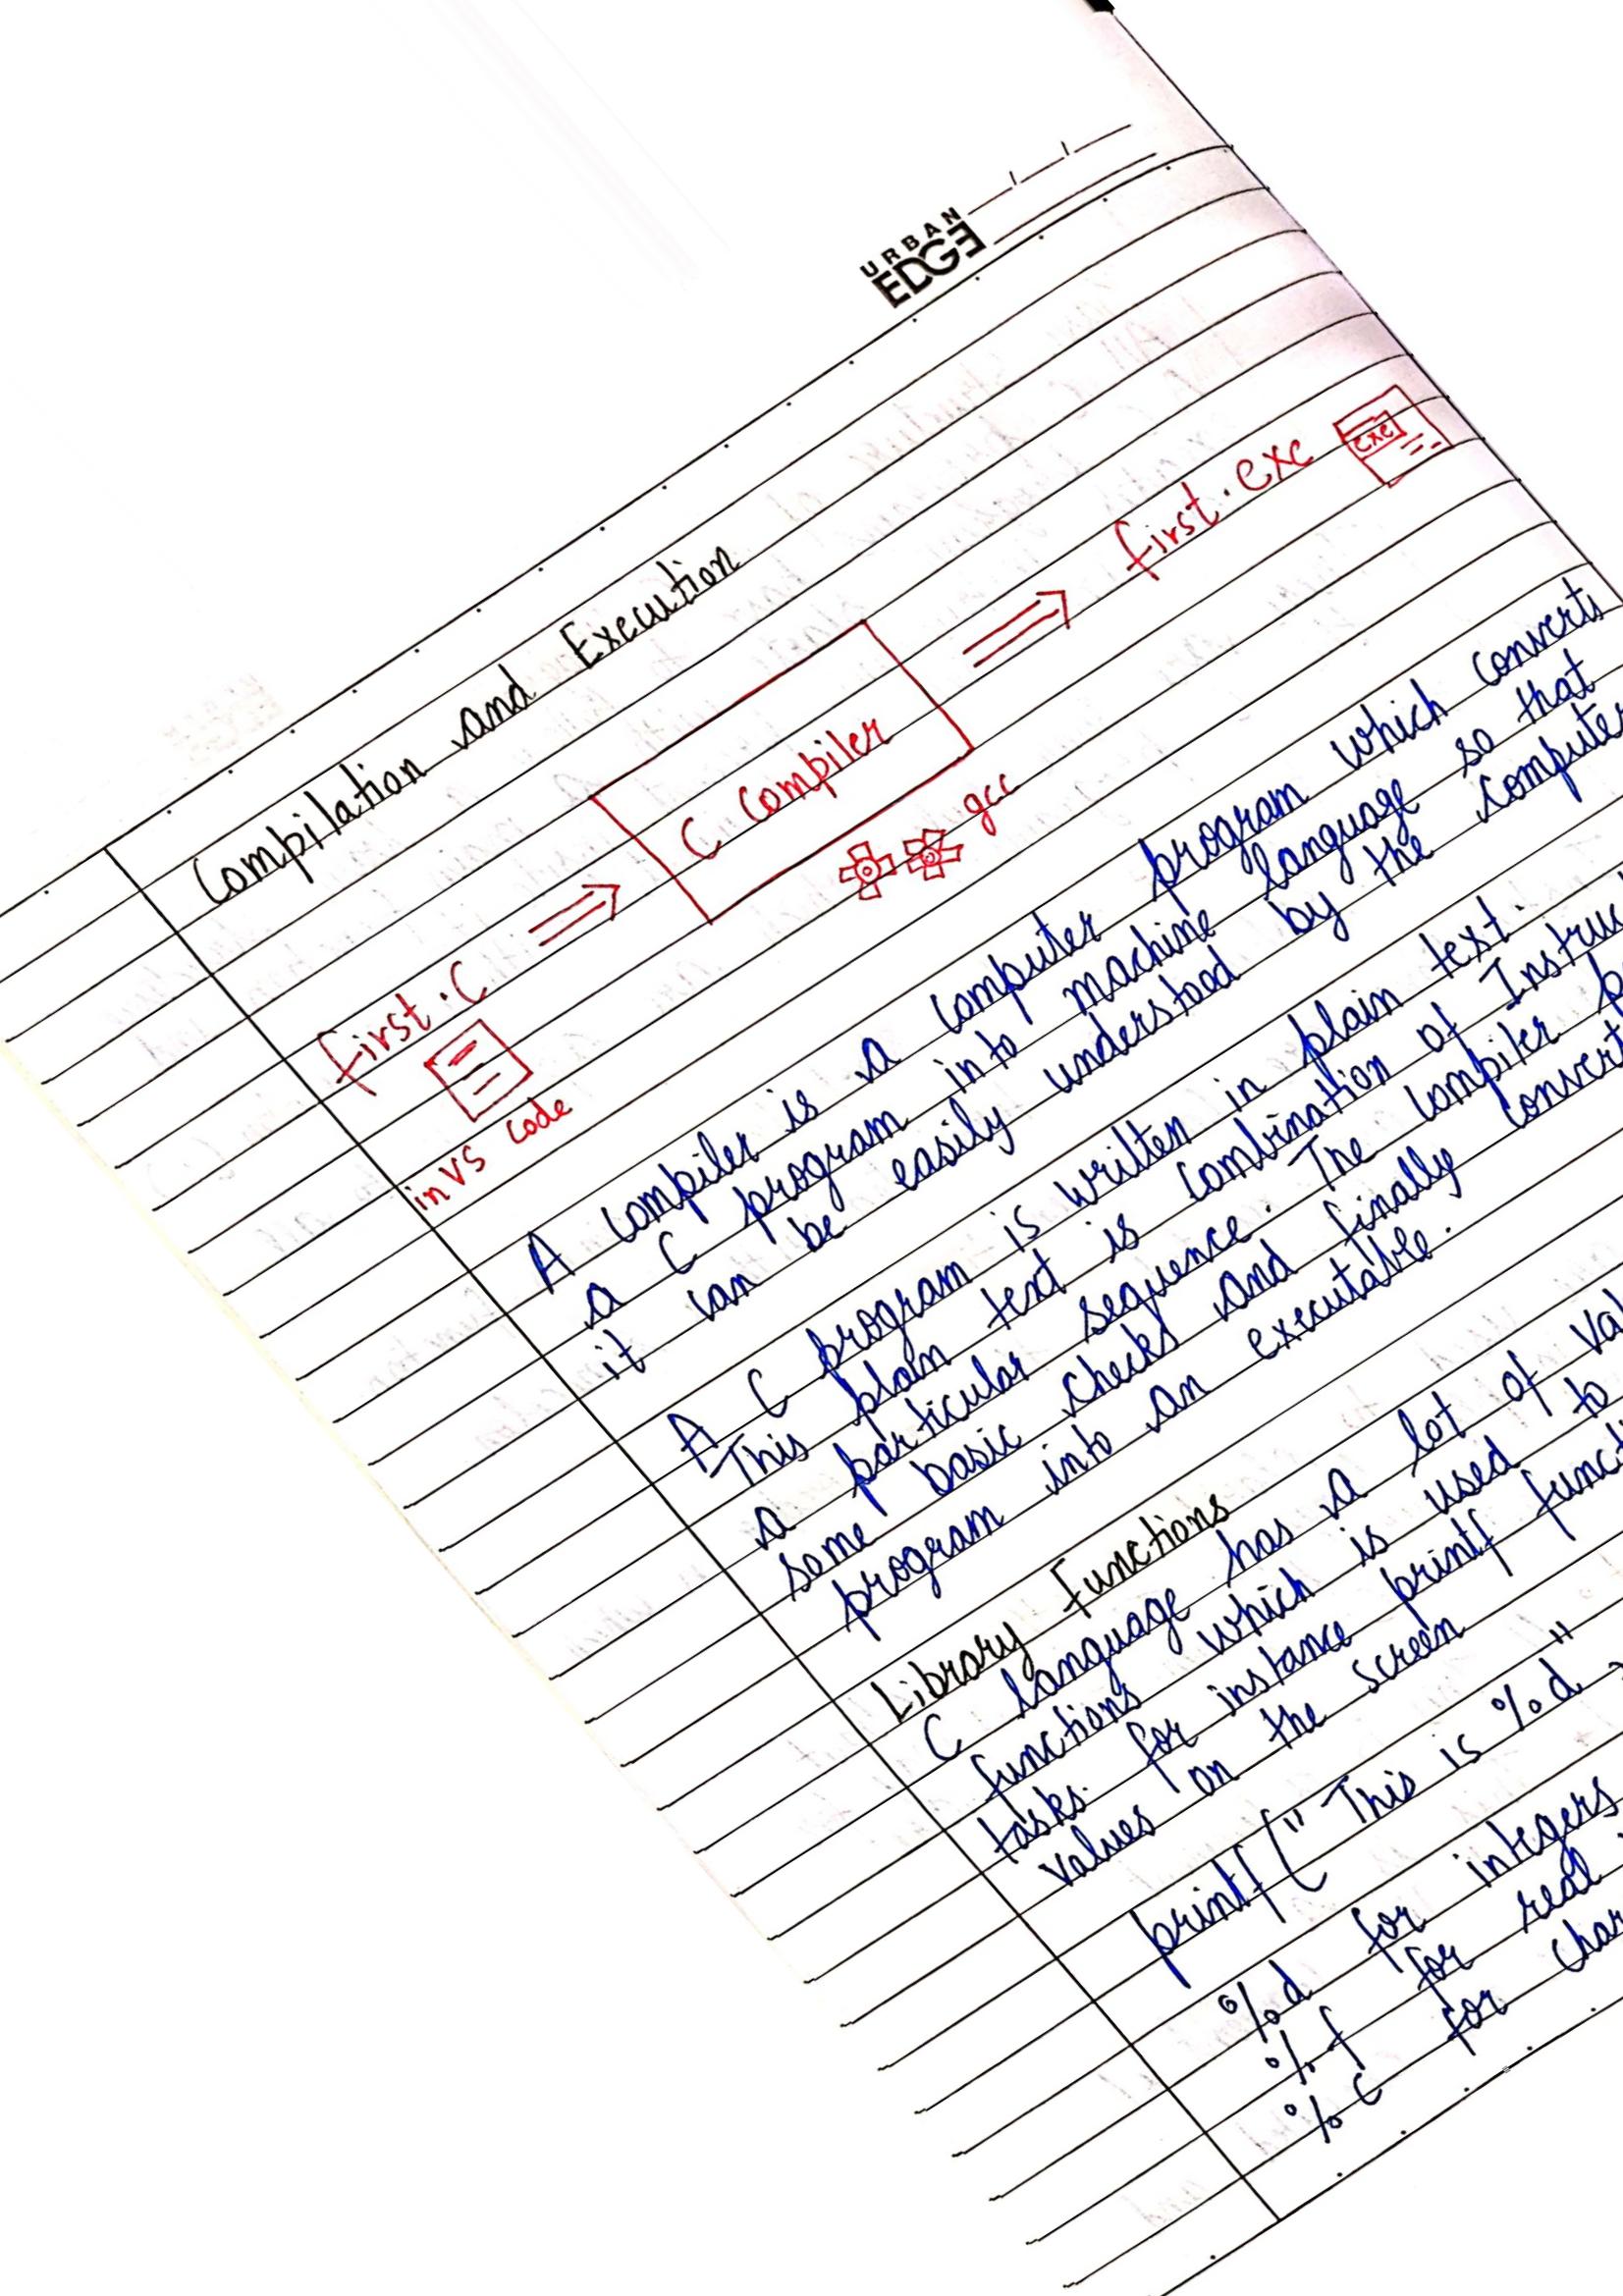 URBAN
EDGE
Compilation and Execution
first.C
in VS code
C Compiler
gcc
first.exe
exe
A compiler is a computer program which converts
a C program into machine language so that
it can be easily understood by the computer
A C program is written in plain text.
This plain text is combination of Instruc
a particular sequence. The compiler p
some basic checks and finally convert
program into an executable.
Library Functions
C language has a lot of val
functions which is used to
tasks. for instance printf funct
values on the screen
printf(" This is %d "
%d for integers
%f for real
%c for char